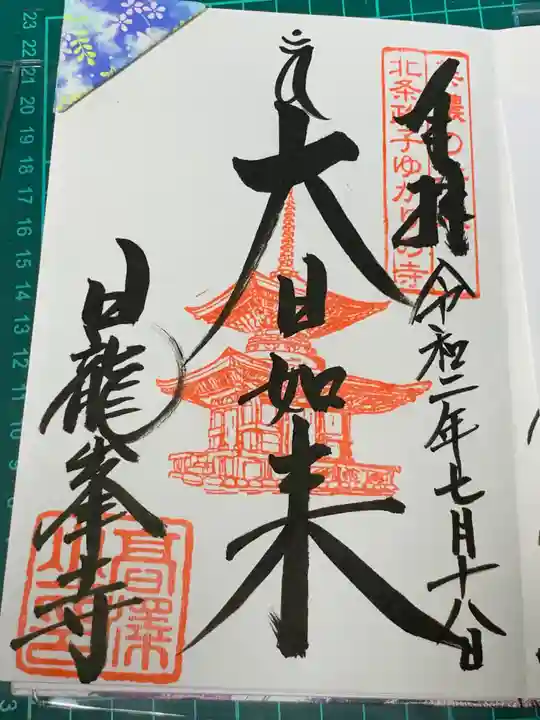 奉拝
令和二年七月十八日
北条政子ゆかりの寺
大日如来
日龍峯寺
高澤
23
22
21
20
19
18
17
16
15
14
13
12
11
10
9
3